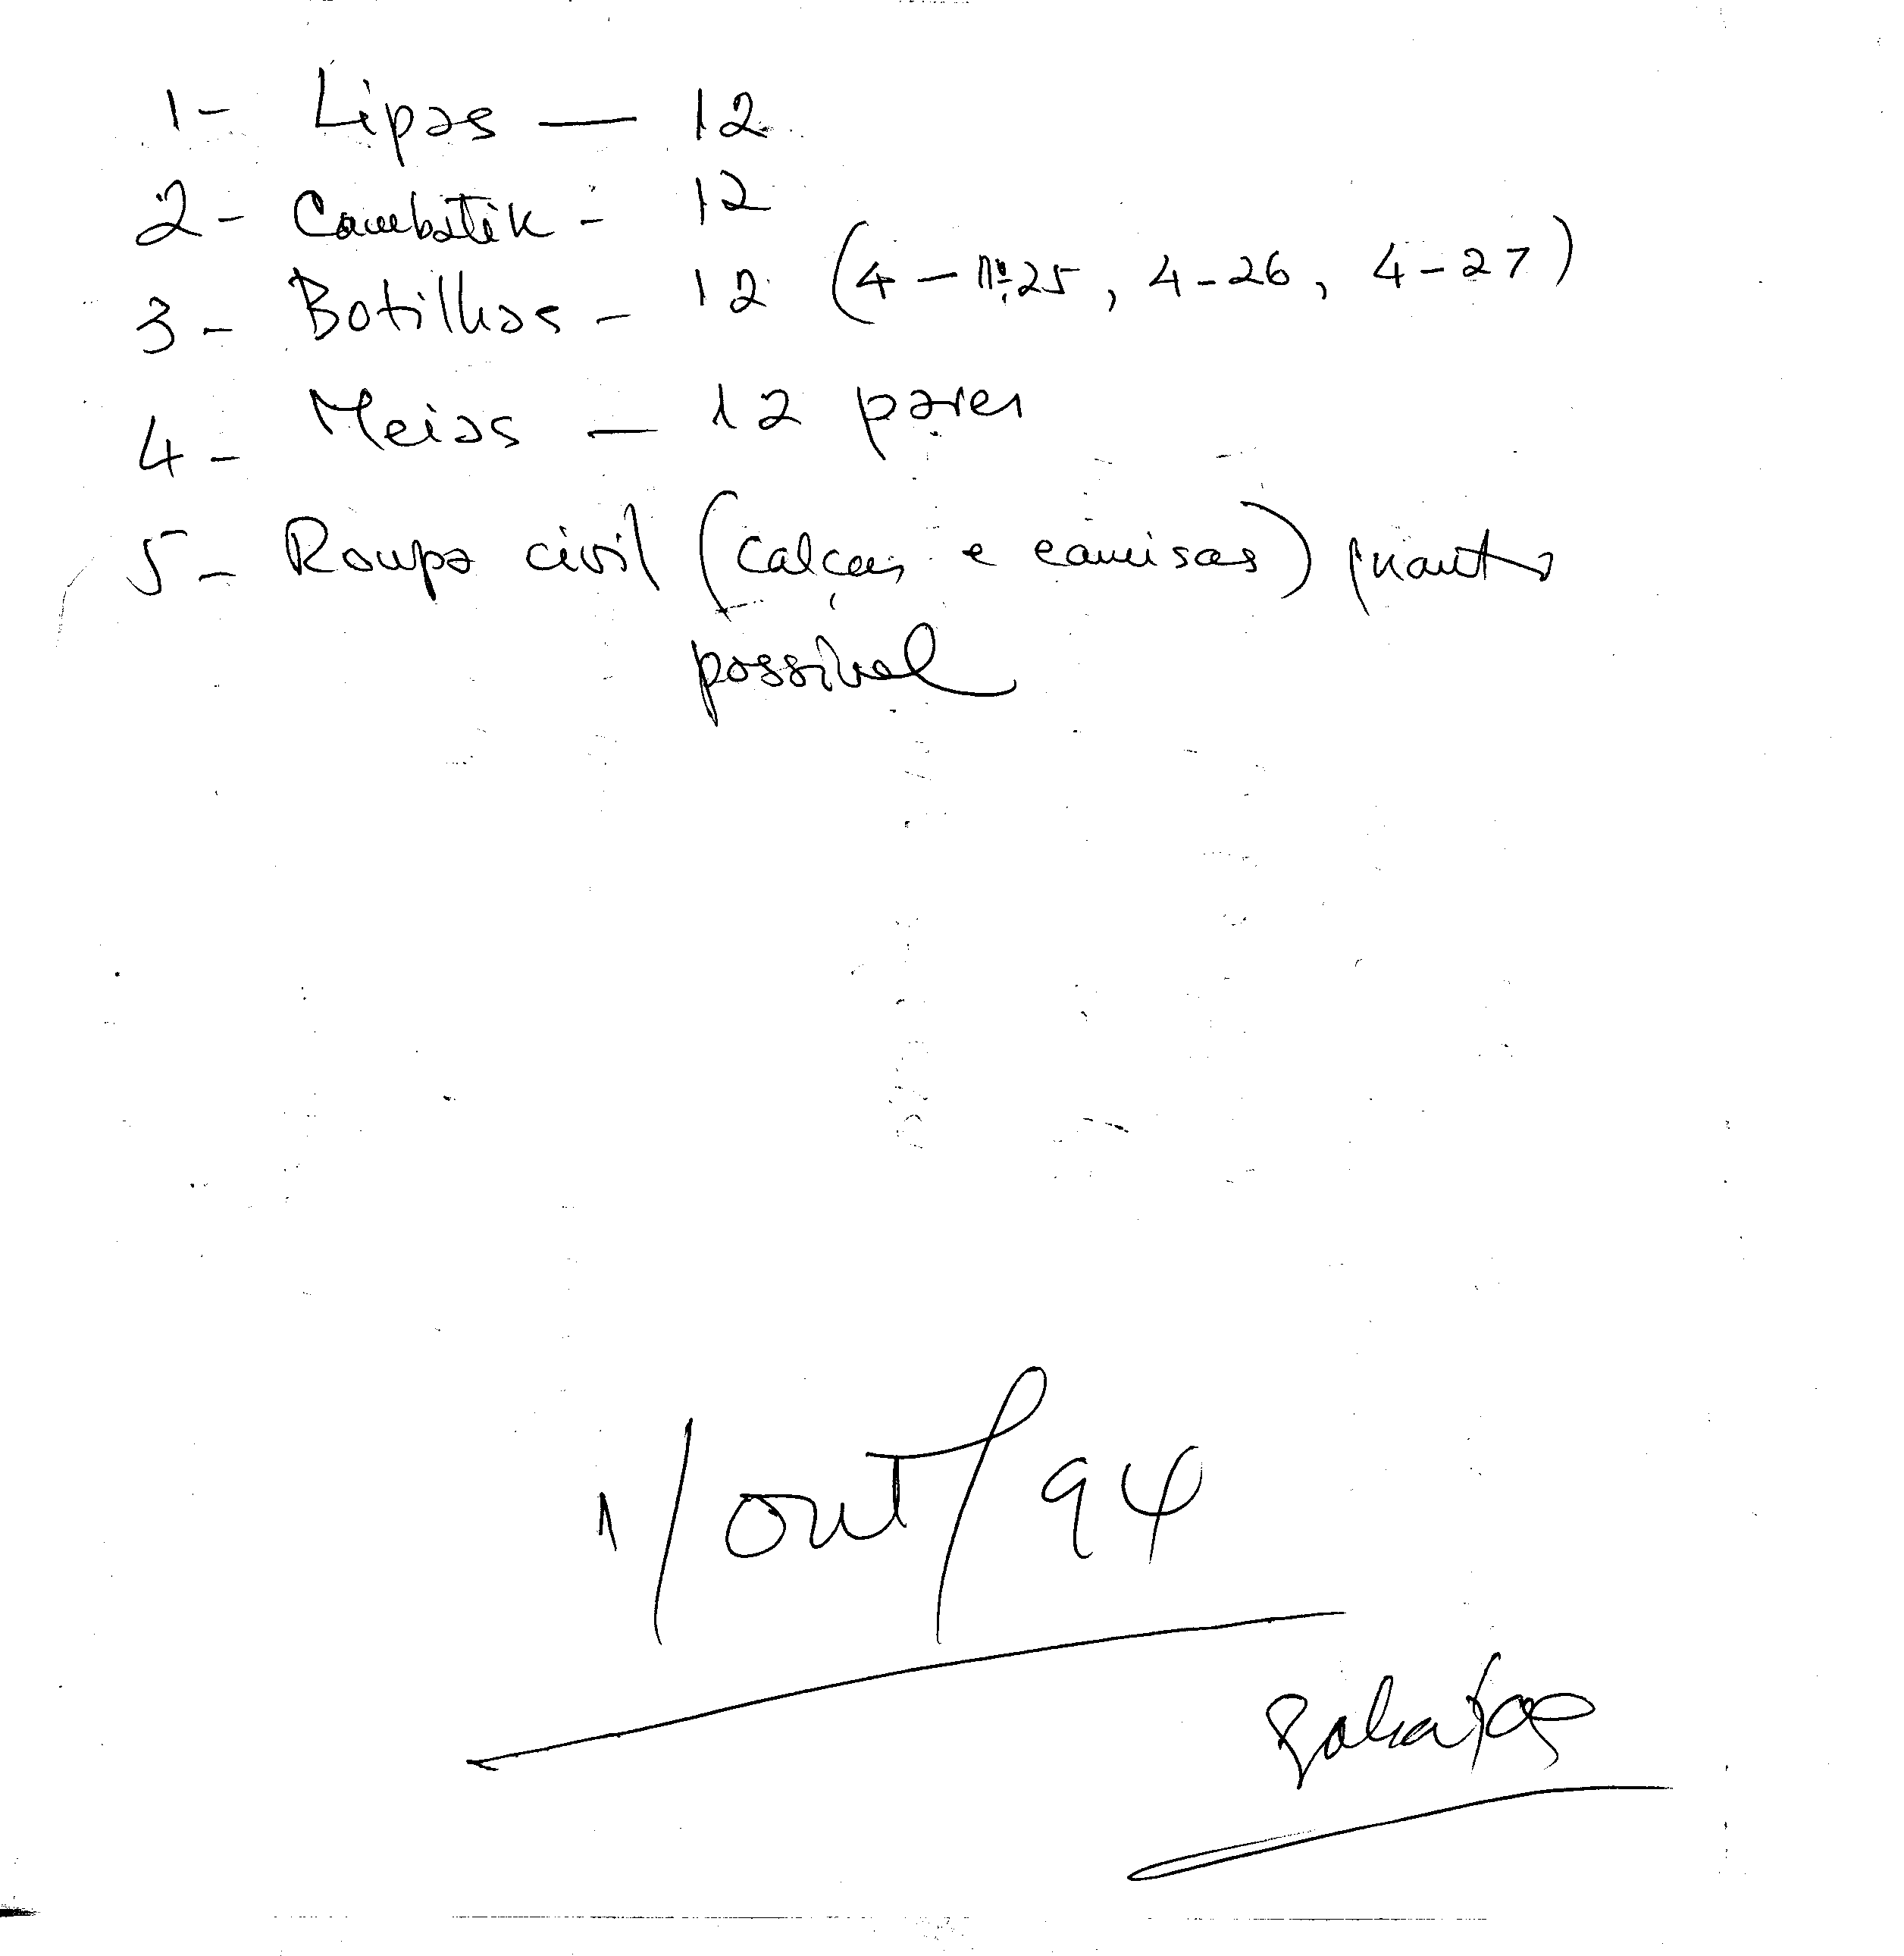 1- Lipas — 12
2- Cambatik - 12
3- Botilhas - 12 (4 - nº 25, 4-26, 4-27)
4- Meias — 12 pares
5- Roupa civil (calças e camisas) quanto
possível
1/out/94